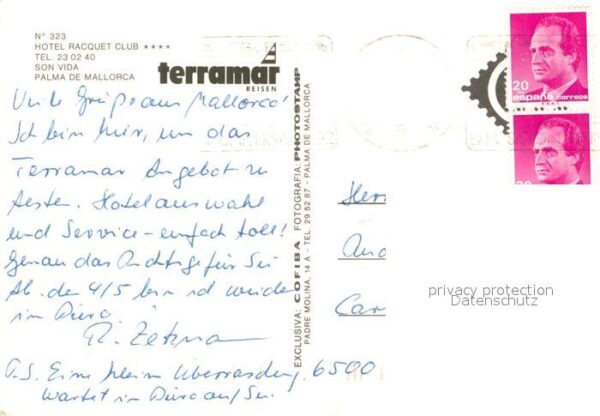 N° 323
HOTEL RACQUET CLUB ★★★★
TEL. 23 02 40
SON VIDA
PALMA DE MALLORCA
terramar
REISEN
Viele Grüße aus Mallorca!
Ich bin hier, um das
Terramar Angebot zu
testen. Hotelauswahl
und Service - einfach toll!
Genau das Richtige für Sie
Ab. den 4/5 bin ich wieder
im Büro
P.S. Eine kleine Überraschung
wartet im Büro auf Sie.
EXCLUSIVA: COFIBA FOTOGRAFIA PHOTOSTAMP
PADRE MOLINA, 14 A - TEL. 29 52 87 - PALMA DE MALLORCA
20
españa correos
20
Her
And
Car
6500
privacy protection
Datenschutz